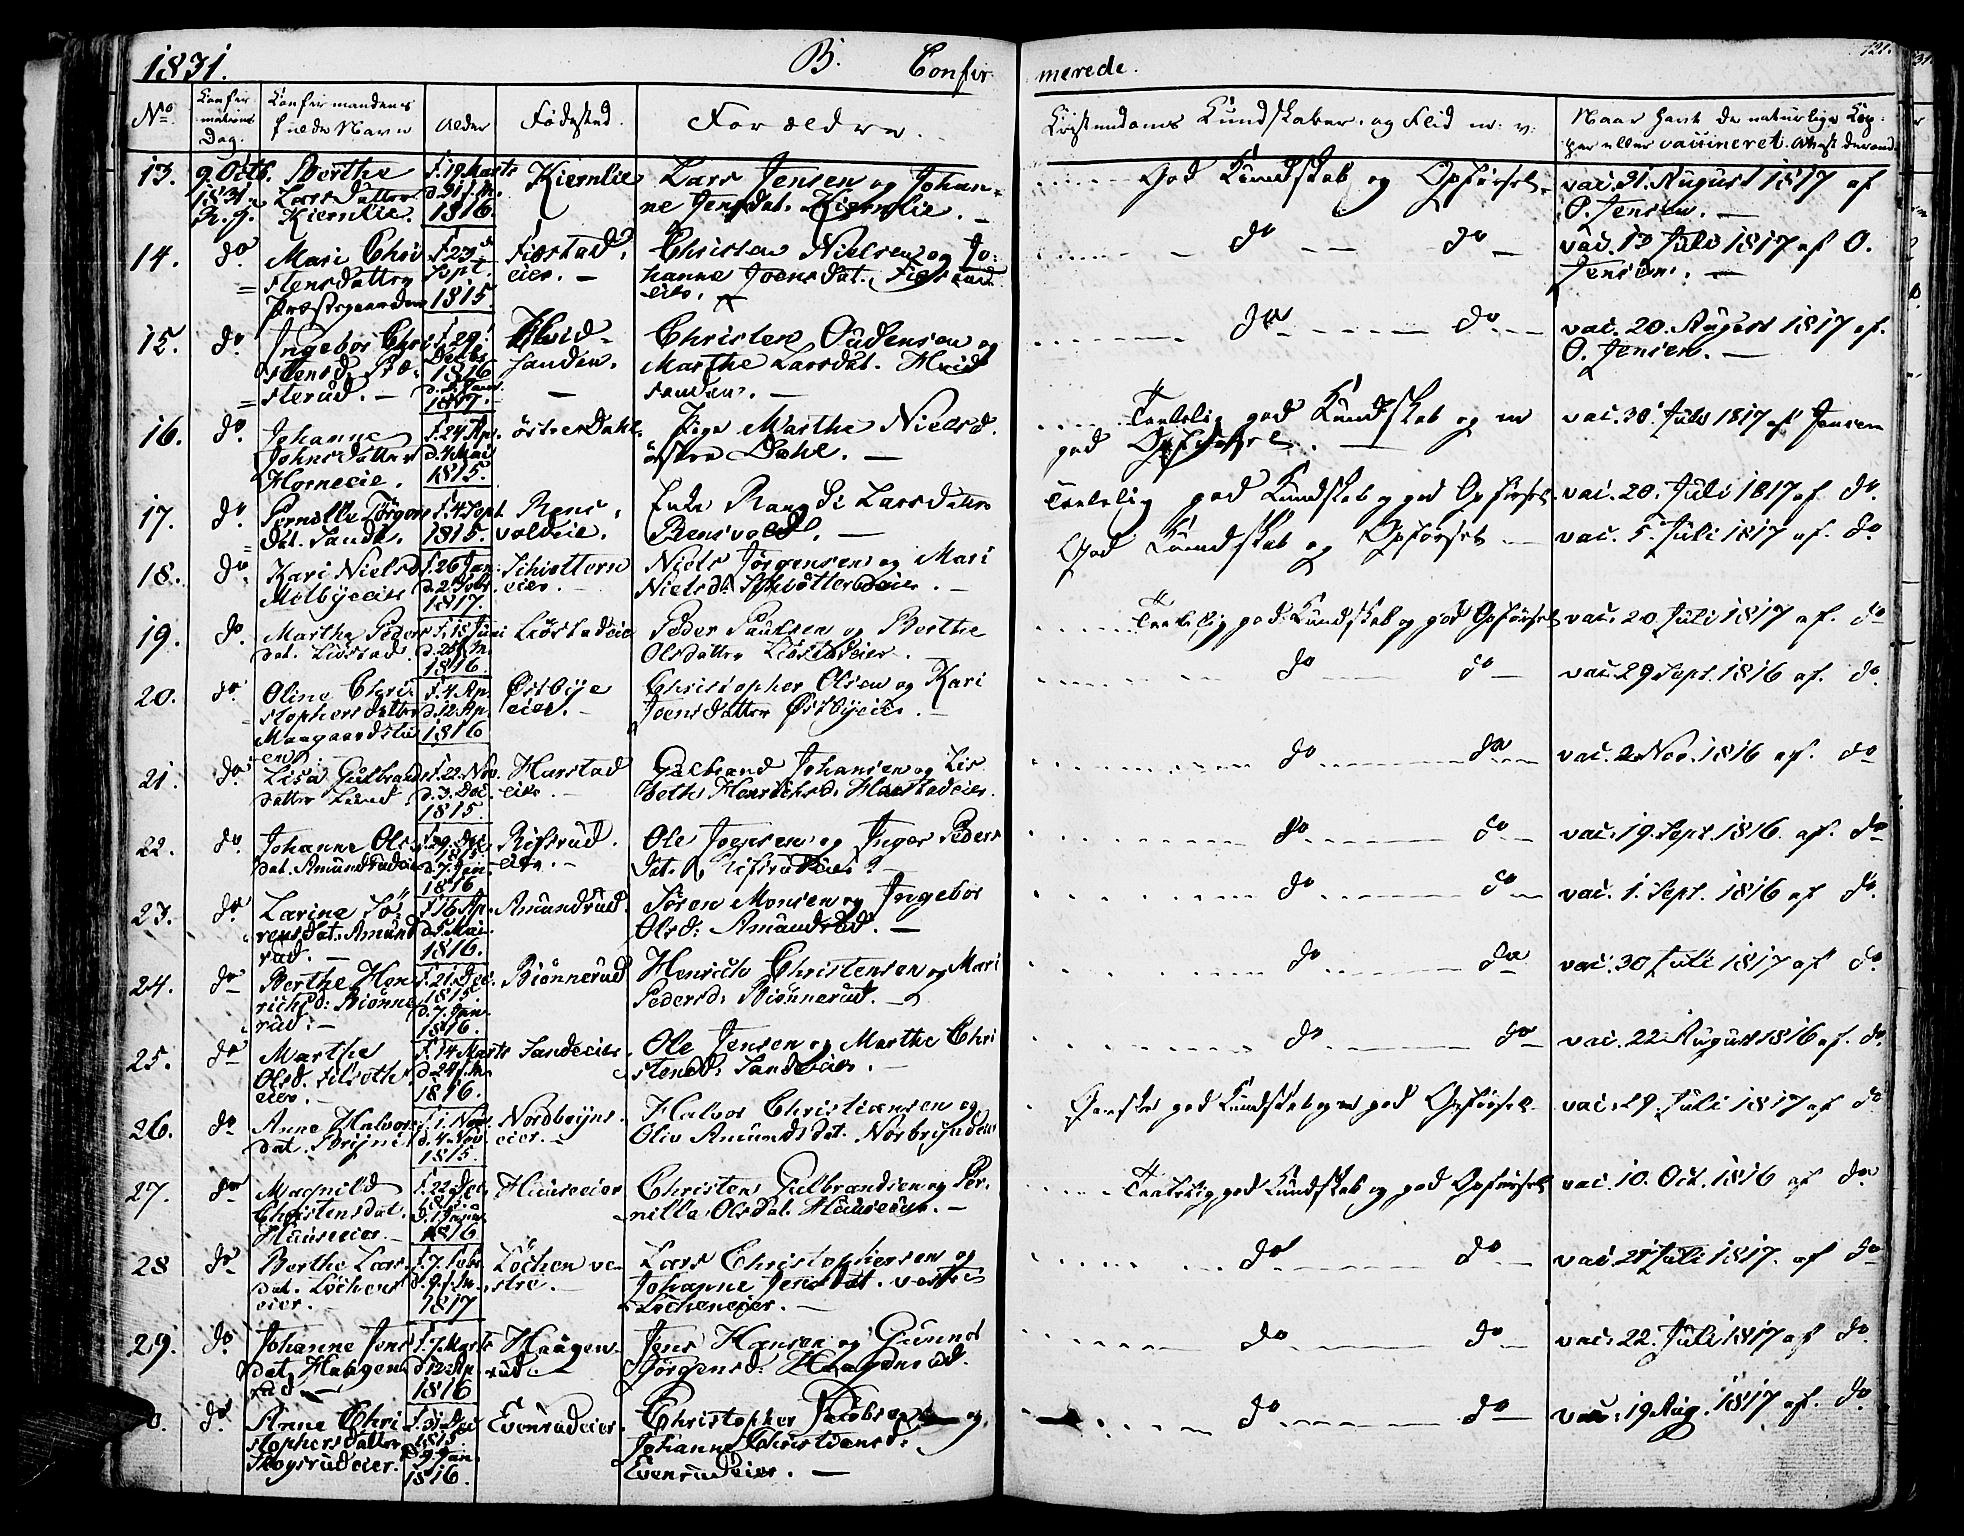 1831. B. Confir merede. 121.
No. Confirmations Dag. Confirmandens fulde Navn Alder Fødested. Forældre. Christendoms Kundskaber og Flid m: v: Naar hant de naturlige Kop: per eller vaccineret.
13. 9 Octb. 1831. Berthe Larsdatter Kiernlie. f. 19 Marts d. 31 s. M. 1816. Kiernlie Lars Jensen og Johanne Jensdat. Kiernlie. God Kundskab og Opførsel. vac. 31. August 1817 af O. Jensen.
14. do Mari Christensdatter Præstegaarden f. 23 Sept. 1815. Fiæstad eier. Christen Nielsen og Johanne Joensdat. Fiæstad eier. do do vac. 13 Juli 1817 af O. Jensen.
15. do Ingebor Christensd. Sæterud. f. 29. Decbr 1816 1817. Hvidsanden. Christen Gudensen og Marthe Larsdat. Hvidsanden. do do vac. 20. August 1817 af. O. Jensen.
16. do. Johanne Johnsdatter Horneeie. f. 24 Ap. d. 4 Mai 1815. østre Dahl. Pige Marthe Nielsd. østre Dahl. Temmelig god Kundskab og en god Opførsel. vac. 30 Juli 1817 af Jensen
17. do. Pernille Jørgensdat. Sande. f. 4 Sept 1815. Rensvoldeie. Enke Rangdi Larsdatter Rensvold. Temmelig god Kundskab og god Opførsel. vac. 20. Juli 1817 af. do.
18. do. Kari Nielsd Melbyeeier f. 26 Jan: d. 2 Febr. 1817. Schiøttern eier. Niels Jørgensen og Mari Nielsd. Schiøtterneier. God Kundskab og Opførsel vac. 5. Juli 1817 af. do
19. do. Marthe Pedersdat. Liøstad. f. 15 Juni 1816. Liøstadeie Peder Paulsen og Berthe Olsdatter Liøstadeier. Temmelig god Kundskab og god Opførsel vac. 20 Juli 1817 af. do
20. do Oline Christophersdatter Maagaardstuen f. 4 Ap. d. 12 Ap. 1816 Østbye eier. Christopher Olsen og Kari Joensdatter Østbyeeier. do do vac. 29 Sept. 1816 af. do.
21. do Lisa Gulbrandsdatter Lund f. 22. Nov. d. 3. Dec. 1815. Harstad eier. Gulbrand Johansen og Lisbeth Henrichsd. Harstadeier. do do vac. 2 Nov. 1816 af. do
22. do. Johanne Olsdat. Amundrudeie f. 29. Dec 1815 d. 7. Jan. 1816 Rifsrud. eier. Ole Joensen og Inger Pedersdat. Rifsrudeier do do vac. 19. Sept. 1816. af. do
23. do Larine Sørensdat. Amundrud. f. 16 Ap. d. 5. Mai. 1816. Amundrud. Søren Monsen og Ingebor Olsd: Amundrud. do do vac. 1. Sept. 1816 af do.
24. do Berthe Henrichsd: Biønnerud. f. 21. Dec. 1815. d. 7. Jan. 1816. Biønnerud Henrich Christensen og Mari Pedersd: Biønnerud. do do vac. 30 Juli 1817 af do.
25. do Marthe Olsd. eier. f. 14 Marts d. 24 s. M. 1816. Sandeeier. Ole Jensen og Marthe Christensd: Sandeeier. do do vac. 22 August 1816 af. do.
26. do Anne Halvorsdat. Brijni f. 1. Nov. d. 4. Nov. 1815. Nordbrijns eier. Halvor Christiansen og Oliv Amundsdat. Norbrijndeier Ganske god Kundskab og en god Opførsel. vac. 29 Juli 1817 af do
27. do Magnild Christensdat. Hauseeier. f. 22 Dec. 1816 Hauseeier Christen Gulbrandsen og Pernille Olsdat. Hauseeier. Temmelig god Kundskab og god Opførsel vac. 10. Oct. 1816 af do
28 do Berthe Larsdat. Løchens eier. f. 7. Febr. d. 9. s. M. 1817 Løchen vestre. Lars Christophersen og Johanne Jensdat. vestre Løcheneier. do do vac. 21 Juli 1817. af do
29. do Johanne Jensdat. Haagenrud. f. 7. Marts d. 12 Ap. 1816 Haagenrud Jens Hansen og Gunnel Jørgensd. Haagenrud. do do vac. 22. Juli 1817 af do.
0. do Anne Christophersdatter Skogsrudeier. f. 31 Dec 1815. d. 9. Jan. 1816. Evenrudeier. Christopher Jacobsen og Johanne Christiansd: Evenrudeier. do do vac. 19 Aug. 1817 af. do.